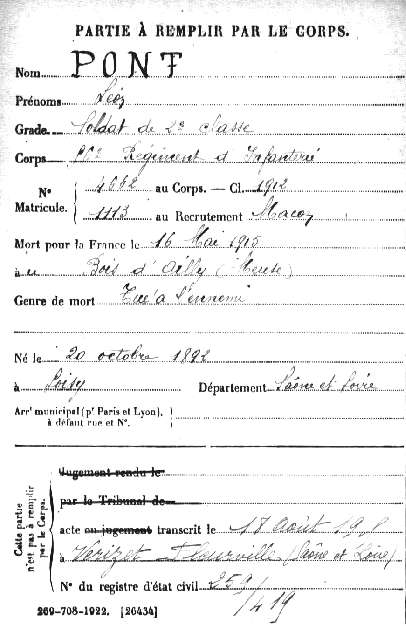 PARTIE À REMPLIR PAR LE CORPS.
Nom PONT
Prénoms Léon
Grade Soldat de 2e classe
Corps Régiment d'Infanterie
Nº Matricule. 4662 au Corps. — Cl. 1912
1113 au Recrutement Macon
Mort pour la France le 16 Mai 1915
à u Bois d'Ailly (Meuse)
Genre de mort Tué à l'ennemi
Né le 20 octobre 1892
à Loisy Département Saône et Loire
Arrt municipal (pr Paris et Lyon),
à défaut rue et Nº.
Cette partie n'est pas à remplir par le Corps.
Jugement rendu le
par le Tribunal de
acte ou jugement transcrit le 17 août
à Verizet Fleurville (Saône et Loire)
Nº du registre d'état civil
269-708-1922. [26434]